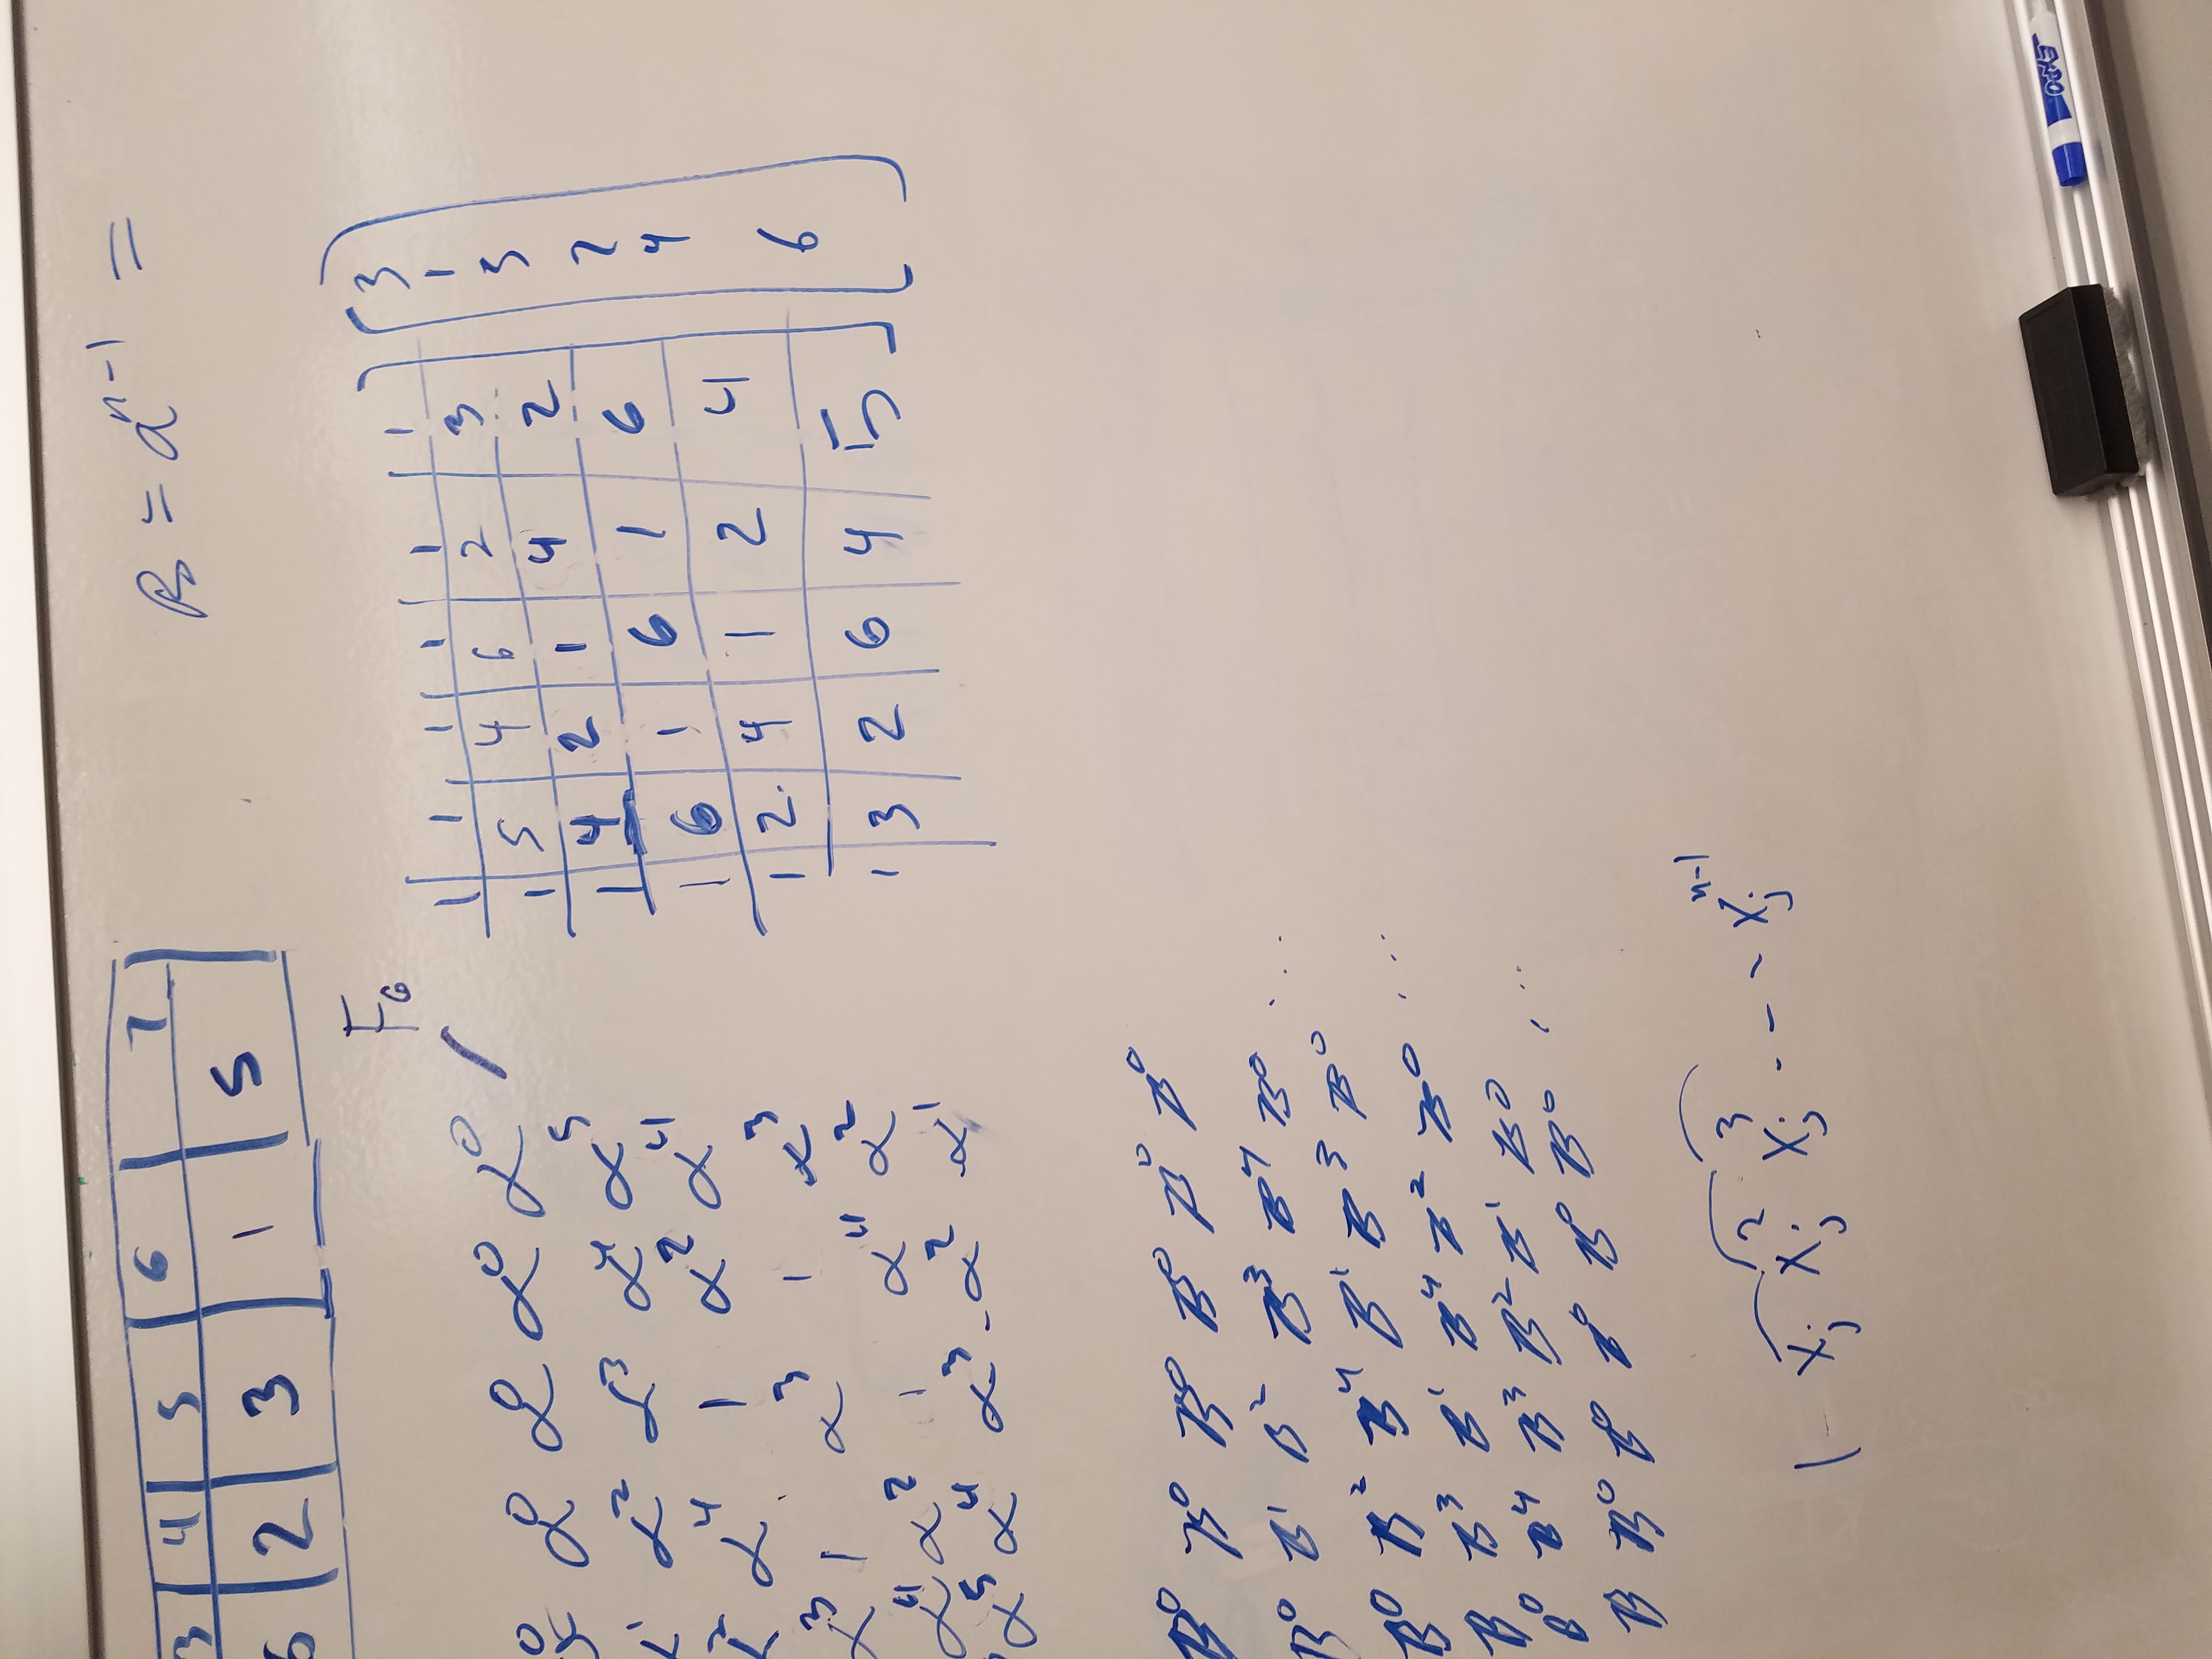 3 4 5 6 7
6 2 3 1 5
B = α^{n-1} =
F₆
α⁰ α⁰ α⁰ α⁰ α⁰
α¹ α² α³ α⁴ α⁵
α² α⁴ 1 α² α⁴
α³ 1 α³ 1 α³
α⁴ α² 1 α⁴ α²
α⁵ α⁴ α³ α² α¹
1 1 1 1 1 1
1 5 4 6 2 3
1 4 2 1 4 2
1 6 1 6 1 6
1 2 4 1 2 4
1 3 2 6 4 5
3
1
3
2
4
6
B⁰ B⁰ B⁰ B⁰ B⁰ B⁰
B⁰ B¹ B² B³ B⁴ B⁰ ...
B⁰ B² B⁴ B¹ B³ B⁰
B B³ B¹ B⁴ B² B⁰ ...
B⁰ B⁴ B³ B² B¹ B⁰
B B⁰ B⁰ B⁰ B⁰ B⁰ ...
1 xⱼ xⱼ² xⱼ³ - - - xⱼ^{n-1}
EXPO